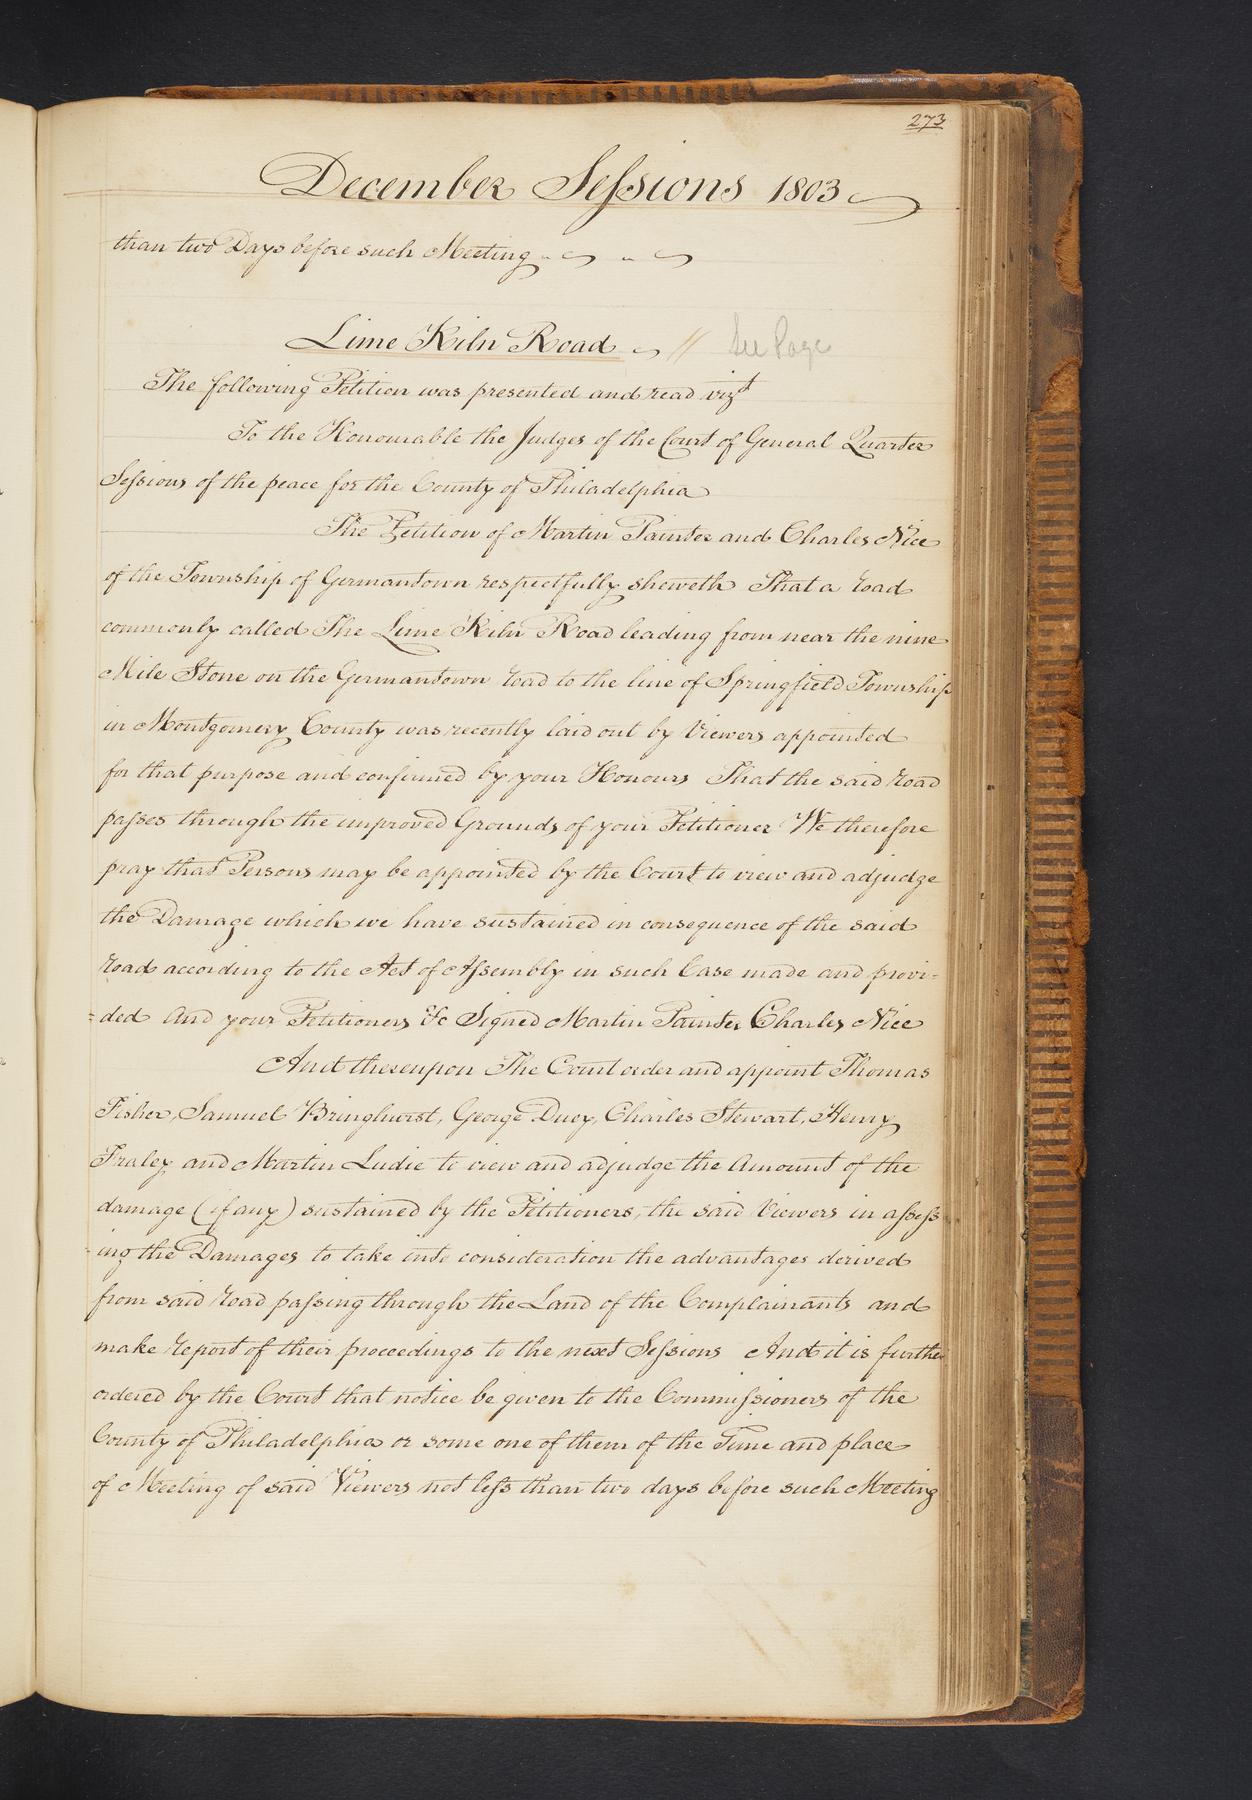 273
December Sessions 1803
than two Days before such Meeting
Lime Kiln Road // See Page
The following Petition was presented and read vizt
To the Honourable the Judges of the Court of General Quarter
Sessions of the peace for the County of Philadelphia
The Petition of Martin Painter and Charles Nice
of the Township of Germantown respectfully sheweth That a road
commonly called The Lime Kiln Road leading from near the nine
Mile Stone on the Germantown road to the line of Springfield Township
in Montgomery County was recently laid out by Viewers appointed
for that purpose and confirmed by your Honours That the said road
passes through the improved Grounds of your Petitioner We therefore
pray that Persons may be appointed by the Court to view and adjudge
the Damage which we have sustained in consequence of the said
road according to the Act of Assembly in such Case made and provi-
=ded And your Petitioners &c Signed Martin Painter Charles Nice
And thereupon The Court order and appoint Thomas
Fisher, Samuel Bringhurst, George Ducy, Charles Stewart, Henry
Fraley and Martin Ludie to view and adjudge the Amount of the
damage (if any) sustained by the Petitioners, the said Viewers in assess
-ing the Damages to take into consideration the advantages derived
from said road passing through the Land of the Complainants and
make report of their proceedings to the next Sessions And it is further
ordered by the Court that notice be given to the Commissioners of the
County of Philadelphia or some one of them of the Time and place
of Meeting of said Viewers not less than two days before such Meeting